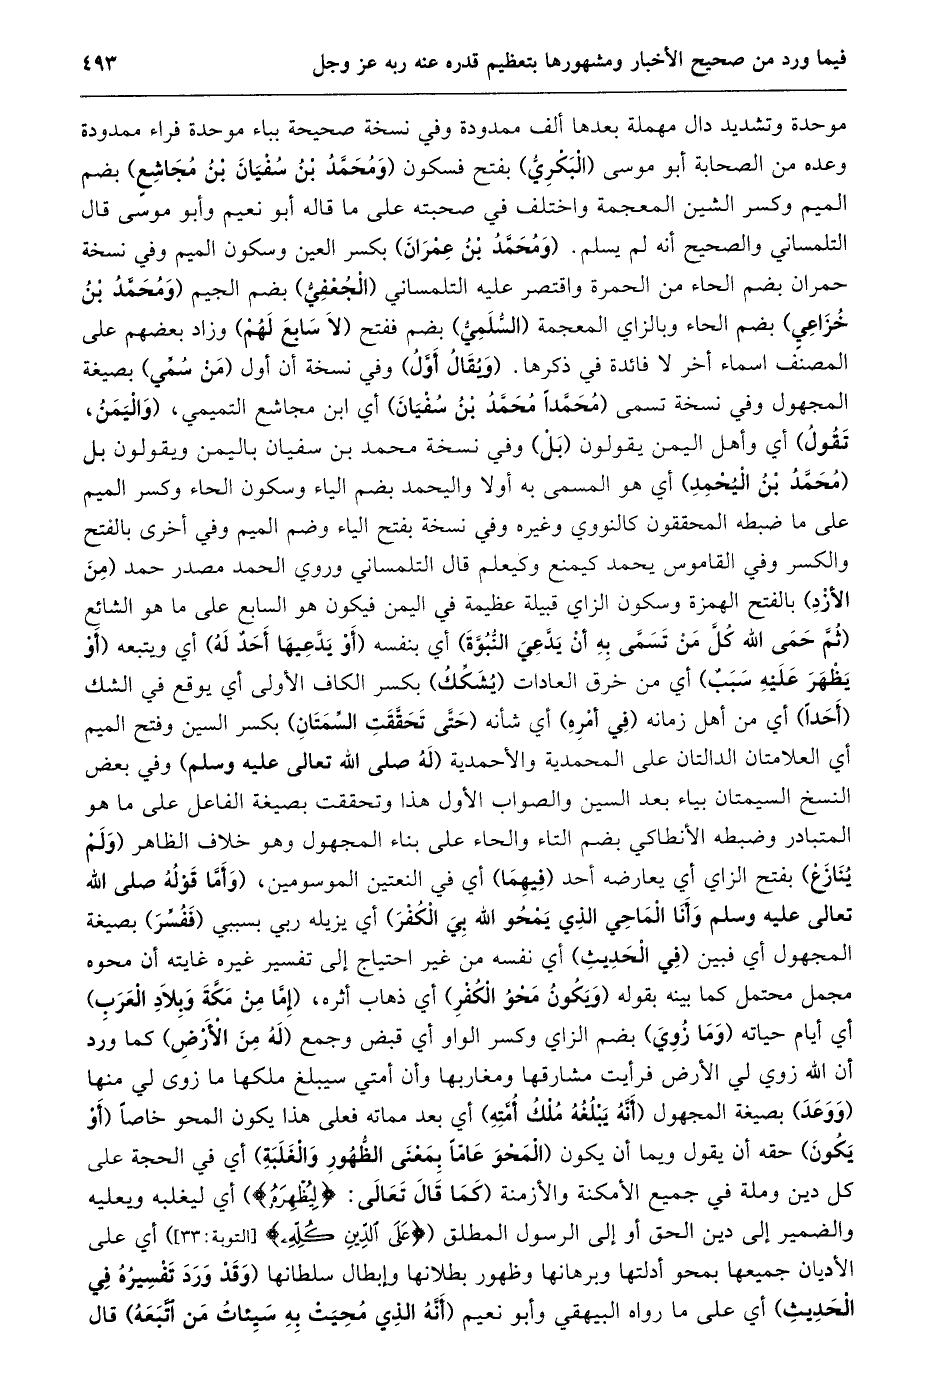 فيما ورد من صحيح الأخبار ومشهورها بتعظيم قدره عنه ربه عز وجل ٤٩٣
موحدة وتشديد دال مهملة بعدها ألف ممدودة وفي نسخة صحيحة بباء موحدة فراء ممدودة
وعده من الصحابة أبو موسى (الْبَكْرِيُّ) بفتح فسكون (وَمُحَمَّدُ بْنُ سُفْيَانَ بْنُ مُجَاشِعٍ) بضم
الميم وكسر الشين المعجمة واختلف في صحبته على ما قاله أبو نعيم وأبو موسى قال
التلمساني والصحيح أنه لم يسلم. (وَمُحَمَّدُ بْنُ عِمْرَانَ) بكسر العين وسكون الميم وفي نسخة
حمران بضم الحاء من الحمرة واقتصر عليه التلمساني (الْجُعْفِيُّ) بضم الجيم (وَمُحَمَّدُ بْنُ
خُزَاعِي) بضم الحاء وبالزاي المعجمة (السُّلَمِيُّ) بضم ففتح (لاَ سَابِعَ لَهُمْ) وزاد بعضهم على
المصنف اسماء أخر لا فائدة في ذكرها. (وَيُقَالُ أَوَّلُ) وفي نسخة أن أول (مَنْ سُمِّي) بصيغة
المجهول وفي نسخة تسمى (مُحَمَّداً مُحَمَّدُ بْنُ سُفْيَانَ) أي ابن مجاشع التميمي، (وَالْيَمَنُ،
تَقُولُ) أي وأهل اليمن يقولون (بَلْ) وفي نسخة محمد بن سفيان باليمن ويقولون بل
(مُحَمَّدُ بْنُ الْيُحْمِدِ) أي هو المسمى به أولا واليحمد بضم الياء وسكون الحاء وكسر الميم
على ما ضبطه المحققون كالنووي وغيره وفي نسخة بفتح الياء وضم الميم وفي أخرى بالفتح
والكسر وفي القاموس يحمد كيمنع وكيعلم قال التلمساني وروي الحمد مصدر حمد (مِنَ
الأَزْدِ) بالفتح الهمزة وسكون الزاي قبيلة عظيمة في اليمن فيكون هو السابع على ما هو الشائع
(ثُمَّ حَمَى الله كُلَّ مَنْ تَسَمَّى بِهِ أَنْ يَدَّعِيَ النُّبُوَّةَ) أي بنفسه (أَوْ يَدَّعِيهَا أَحَدٌ لَهُ) أي ويتبعه (أَوْ
يَظْهَرَ عَلَيْهِ سَبَبٌ) أي من خرق العادات (يُشَكِّكُ) بكسر الكاف الأولى أي يوقع في الشك
(أَحَداً) أي من أهل زمانه (فِي أَمْرِهِ) أي شأنه (حَتَّى تَحَقَّقَتِ السِّمَتَانِ) بكسر السين وفتح الميم
أي العلامتان الدالتان على المحمدية والأحمدية (لَهُ صلى الله تعالى عليه وسلم) وفي بعض
النسخ السيمتان بياء بعد السين والصواب الأول هذا وتحققت بصيغة الفاعل على ما هو
المتبادر وضبطه الأنطاكي بضم التاء والحاء على بناء المجهول وهو خلاف الظاهر (وَلَمْ
يُنَازَعْ) بفتح الزاي أي يعارضه أحد (فِيهِمَا) أي في النعتين الموسومين، (وَأَمَّا قَوْلُهُ صلى الله
تعالى عليه وسلم وَأَنَا الْمَاحِي الذِي يَمْحُو الله بِيَ الْكُفْرَ) أي يزيله ربي بسببي (فَفُسِّرَ) بصيغة
المجهول أي فبين (فِي الْحَدِيثِ) أي نفسه من غير احتياج إلى تفسير غيره غايته أن محوه
مجمل محتمل كما بينه بقوله (وَيَكُونُ مَحْوُ الْكُفْرِ) أي ذهاب أثره، (إِمَّا مِنْ مَكَّةَ وَبِلاَدِ الْعَرَبِ)
أي أيام حياته (وَمَا زُوِيَ) بضم الزاي وكسر الواو أي قبض وجمع (لَهُ مِنَ الأَرْضِ) كما ورد
أن الله زوي لي الأرض فرأيت مشارقها ومغاربها وأن أمتي سيبلغ ملكها ما زوى لي منها
(وَوَعَدَ) بصيغة المجهول (أَنَّهُ يَبْلُغُهُ مُلْكُ أُمَّتِهِ) أي بعد مماته فعلى هذا يكون المحو خاصاً (أَوْ
يَكُونَ) حقه أن يقول ويما أن يكون (الْمَحْوَ عَامّاً بِمَعْنَى الظُّهُورِ وَالْغَلَبَةِ) أي في الحجة على
كل دين وملة في جميع الأمكنة والأزمنة (كَمَا قَالَ تَعَالَى: ﴿لِيُظْهِرَهُ﴾) أي ليغلبه ويعليه
والضمير إلى دين الحق أو إلى الرسول المطلق (﴿عَلَى ٱلدِّينِ كُلِّهِۦ﴾ [التوبة: ٣٣]) أي على
الأديان جميعها بمحو أدلتها وبرهانها وظهور بطلانها وإبطال سلطانها (وَقَدْ وَرَدَ تَفْسِيرُهُ فِي
الْحَدِيثِ) أي على ما رواه البيهقي وأبو نعيم (أَنَّهُ الذِي مُحِيَتْ بِهِ سَيِئاتُ مَن اتَّبَعَهُ) قال